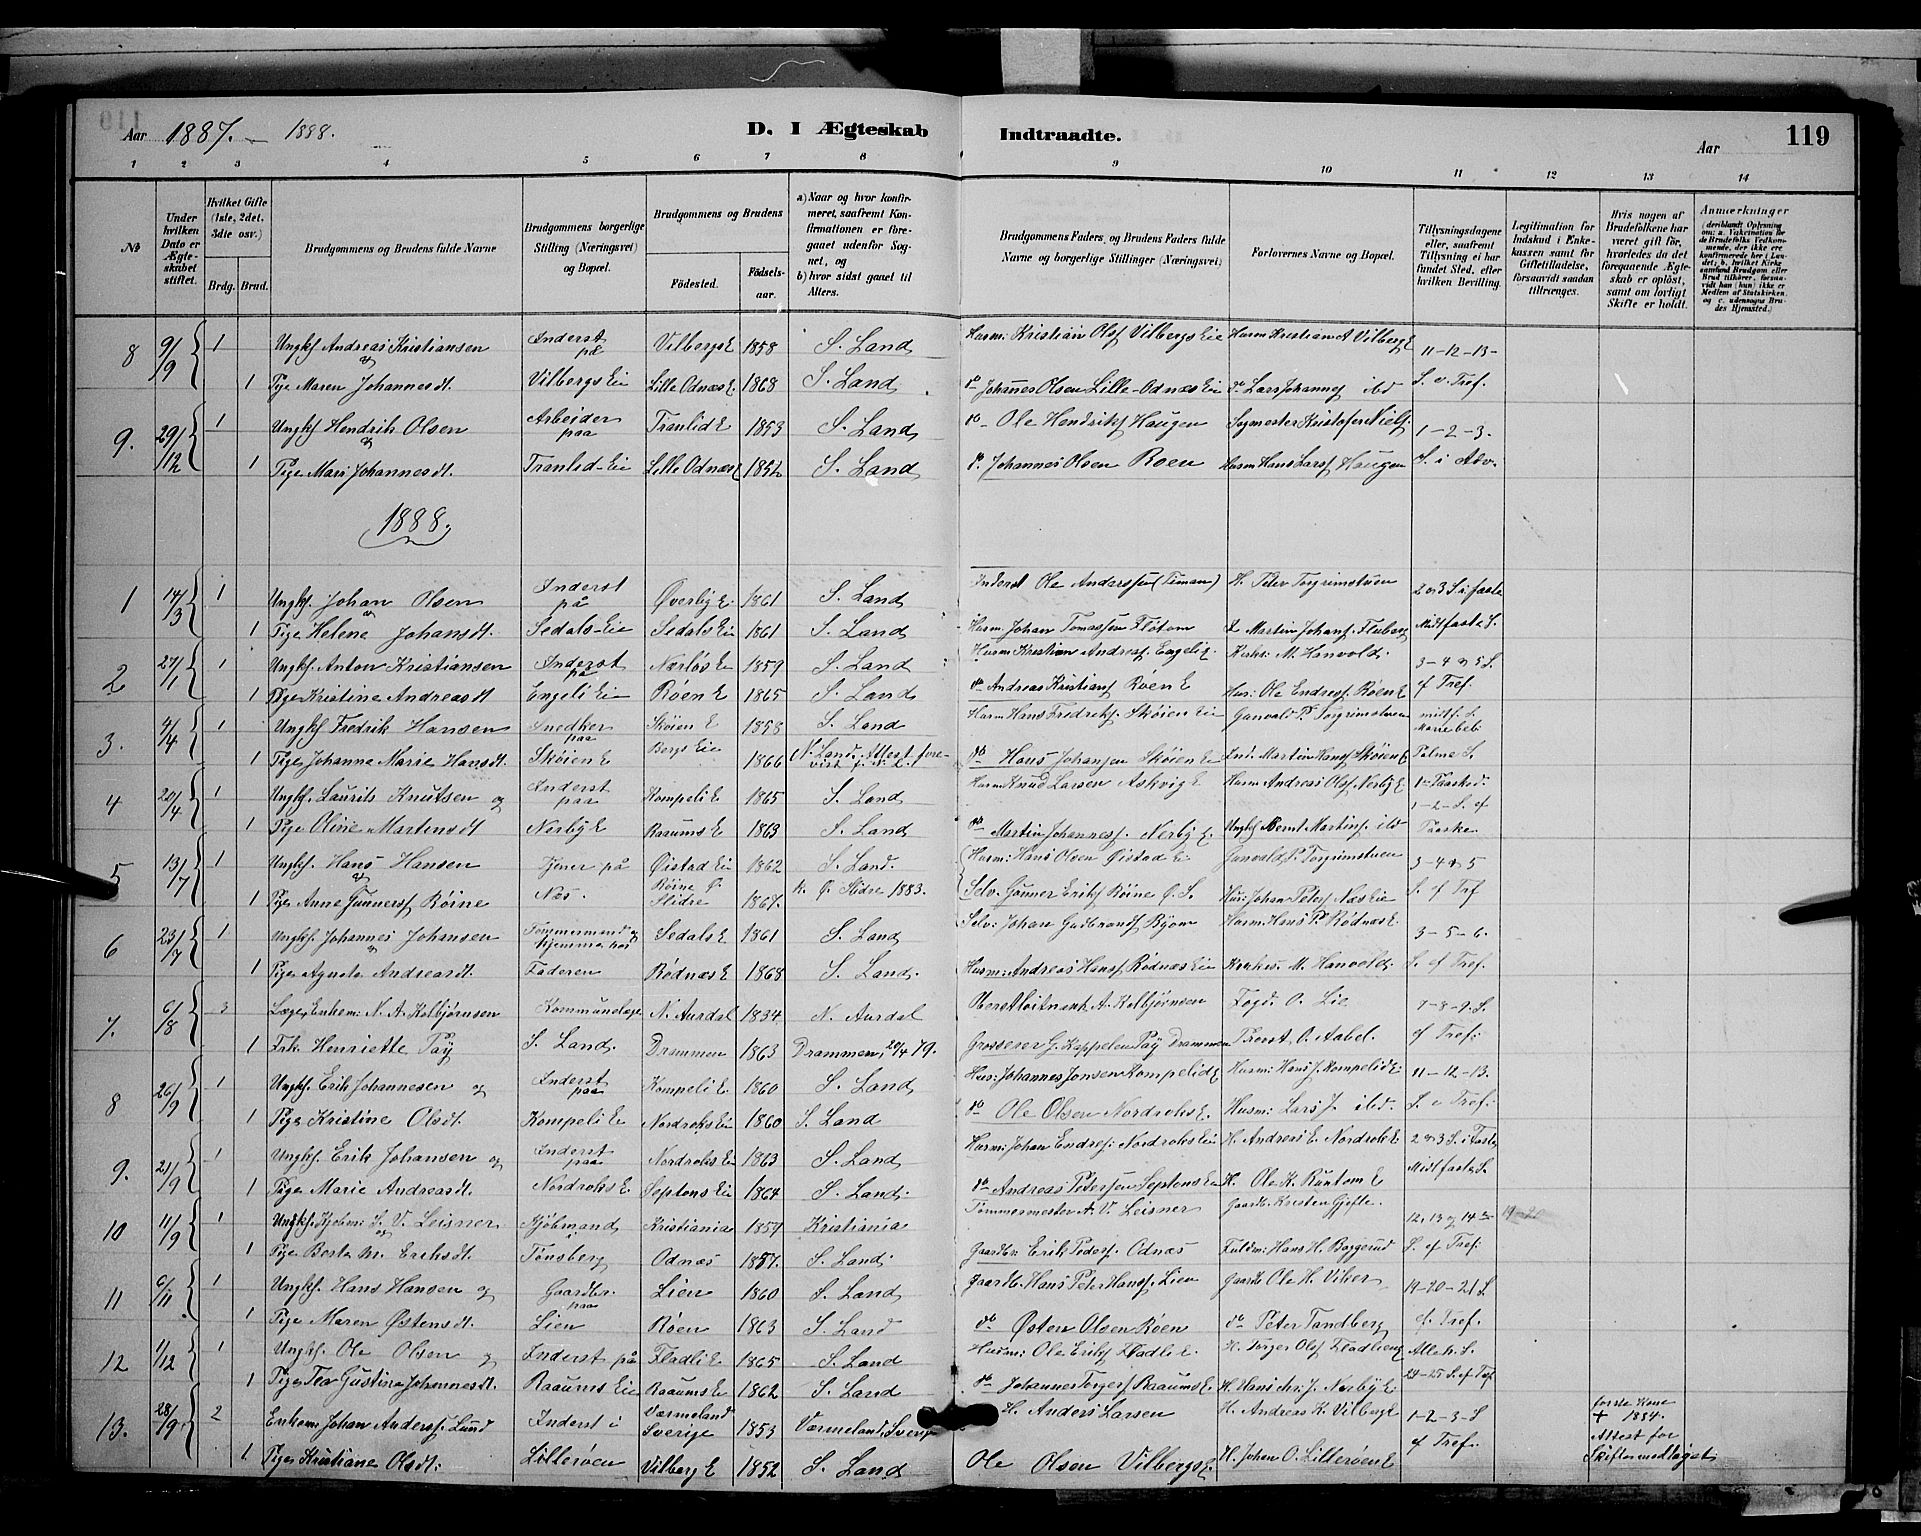 Aar 1887. – 1888. D. I Ægteskab Indtraadte. Aar 119
1 2 3 4 5 6 7 8 9 10 11 12 13 14
№
Under hvilken Dato er Ægteskabet stiftet.
Hvilket Gifte (1ste, 2det, 3die osv.)
Brdg. Brud.
Brudgommens og Brudens fulde Navne
Brudgommens borgerlige Stilling (Næringsvei) og Bopæl.
Brudgommens og Brudens
Fødested. Fødselsaar.
a) Naar og hvor konfirmeret, saafremt Konfirmationen er foregaaet udenfor Sognet, og
b) hvor sidst gaaet til Alters.
Brudgommens Faders, og Brudens Faders fulde Navne og borgerlige Stillinger (Næringsvei)
Forlovernes Navne og Bopæl.
Tillysningsdagene eller, saafremt Tillysning ei har fundet Sted, efter hvilken Bevilling.
Legitimation for Indskud i Enkekassen samt for Giftetilladelse, forsaavidt saadan tiltrænges.
Hvis nogen af Brudefolkene har været gift før, hvorledes da det foregaaende Ægteskab er opløst, samt om lovligt Skifte er holdt.
Anmærkninger (deriblandt Oplysning om: a. Vakcination for de Brudefolks Vedkommende, der ikke ere konfirmerede her i Landet; b. hvilket Kirkesamfund Brudgom eller Brud tilhører, forsaavidt han (hun) ikke er Medlem af Statskirken, og c. udensogns Brudes Hjemsted.)
8 9/9 1 Ungkf Andreas Kristiansen og Inderst på Vilbergs E 1858 S. Land Husm: Kristian Olsf Vilbergs Eie Husm Kristian A Vilberg E 11-12-13-
1 Pige Maren Johannesdt. Vilbergs Eie Lille Odnæs E. 1868 S. Land do Johannes Olsen Lille-Odnæs Eie do Lars Johannesf ibd S. e. Tref.
9. 29/12 1 Ungkf Hendrik Olsen og Arbeider paa Tranlid E 1853 S. Land do Ole Hendriksf Haugen Sagmester Kristofer Nielsf. 1-2-3.
1 Pige Mari Johannesdt. Tranlid-Eie Lille Odnæs E 1852 S. Land do Johannes Olsen Roen Husm Hans Larsf Haugen S. i Adv.
1888.
1 14/3 1 Ungkf. Johan Olsen og Inderst på Øverby E. 1861 S. Land Inderst Ole Anderssen (Timan) H. Peter Torgrimstuen 2 og 3 S. i faste
1 Pige Helene Johansdt. Sedals-Eie Sedals Eie 1861 S. Land Husm. Johan Tomassen Fløtom Martin Johansf. Fluberg Midfaste S.
2 27/1 1 Ungkf. Anton Kristiansen Inderst på Nerløs E 1859 S. Land Husm Kristian Andreasf. Engeli E. Kirks: M. Hanvold. 3-4 og 5 S.
1 Pige Kristine Andreasdt Engeli Eie Røen E 1865 S. Land do Andreas Kristiansf Røen E Hus: Ole Endresf. Røen E ef Tref.
3. 4/4 1 Ungkf Fredrik Hansen Snedker paa Skøien E 1858 S. Land Husm Hans Fredriksf. Skøien Eie Gunvald P. Torgrimstuen midtf. S. Marie beb:
1 Pige Johanne Marie Hansdt. Skøien E Bergs Eie 1866 N. Land. Attest fore- do Hans Johansen Skøien Eie Ind. Martin Hansf Skøien E Palme S.
4 20/4 1 Ungkf. Laurits Knutsen og Inderst paa Kompeli E 1865 S. Land Husm Knud Larsen Askvig E Husm Andreas Olsf Nerby E. 1-2-S. ef
1 Pige Oline Martinsdt Nerby E Raaums E 1863 S. Land do Martin Johannesf. Nerby E. Ungkf Bernt Martinsf. ibd Paaske
5 13/7 1 Ungkf. Hans Hansen og Tjener på 1862 S. Land. Husm: Hans Olsen Øistad E Gunvald P. Torgrimstuen 3-4 og 5
Øistad Eie
1 Pige Anne Gunnersf Røine Næs. Røine Ø. Slidre 1867. k. Ø. Slidre 1883. Selv. Gunner Eriksf Røine Ø. S. Hus: Johan Petersf Næs Eie S. ef Tref
6 23/7 1 Ungkf. Johannes Johansen og Tømmermand og hjemme hos Sedals E 1861 S. Land Selv: Johan Gudbrandsf Byom Husm. Hans P. Rødnæs E. 3-5-6.
1 Pige Agnete Andreasdt. Faderen Rødnæs E 1868 S. Land. Husm: Andreas Hansf Rødnæs Eie Kirks: M. Hanvold. S. ef Tref.
7. 6/8 3 Læge, Enkem: N. A. Kolbjørnsen Kommunelæge N. Aurdal 1834 N. Aurdal Oberstløitnant A. Kolbjørnsen Fogd. O. Lie 7-8-9. S.
1 Frk. Henriette Pay S. Land. Drammen 1863 Drammen, 20/4 79. Grosserer G. Kappelen Pay Drammen Provst O. Aabel. ef Tref:
8 26/9 1 Ungkf: Erik Johannesen og Inderst paa Kompeli E 1860 S. Land Hus: Johannes Jonsen Kompelid E Husm: Hans J. Kompelid E. 11-12-13.
1 Pige Kristine Olsdt. Kompeli Eie Nordroks E. 1860 S. Land do Ole Olsen Nordroks E. Husm: Lars J. ibd. S. e Tref:
9. 21/9 1 Ungkf. Erik Johansen og Inderst paa Nordroks Eie 1863 S. Land Husm: Johan Endresf: Nordroks Eie H. Andreas E. Nordrok E. 2 og 3 S. i Faste
1 Pige Marie Andreasdt. Nordroks E. Septons Eie 1864 S. Land. do Andreas Petersen Septons Eie H. Ole K. Runtom E Midfaste S.
10 11/9 1 Ungkf. Kjøbm: S. V. Leisner og Kjøbmand i Kristiania 1857 Kristiania Tømmermester A. V. Leisner Gaardb. Kristen Gjefle. 12, 13 og 14de 19-20
1 Pige Berta M. Eriksdt. Tønsberg Odnæs 1857. S. Land. Gaardbr: Erik Pedersf. Odnæs Fuldm: Hans H. Borgerud S. ef Tref:
11 6/11. 1 Ungkf. Hans Hansen og Gaardbr. paa Lien 1860 S. Land Gaardb. Hans Peter Hansf. Lien Gaardb Ole H. Viker 19-20-21 S
1 Pige Maren Østensdt. Lien Røen 1863 S. Land do Østen Olsen Røen do Peter Tandberg ef. Tref.
12 1/12 1 Ungkf. Ole Olsen og Inderst på Fladli E 1865 S. Land Husm: Ole Eriksf Fladli E. H. Torger Olsf Fladlieng Alleh. S.
1 Pige Tea Gustine Johannesdt. Raaums Eie Raaums E 1862 S. Land do Johannes Torgersf Raaums E. H. Hans Chr. J. Nerby E 24-25 S. ef Tref
13. 28/9. 2 Enkem: Johan Andersf. Lund Inderst i Værmeland Sverige 1853 Værmeland, Sverge H. Anders Larsen H. Andreas K. Vilberg E 1-2-3-S første Kone + 1884. Attest for
1 Pige Kristiane Olsdt: Lillerøen Vilberg E 1852 S. Land Ole Olsen Vilbergs E. H. Johan O. Lillerøen E ef Tref. Skiftesmedlaget